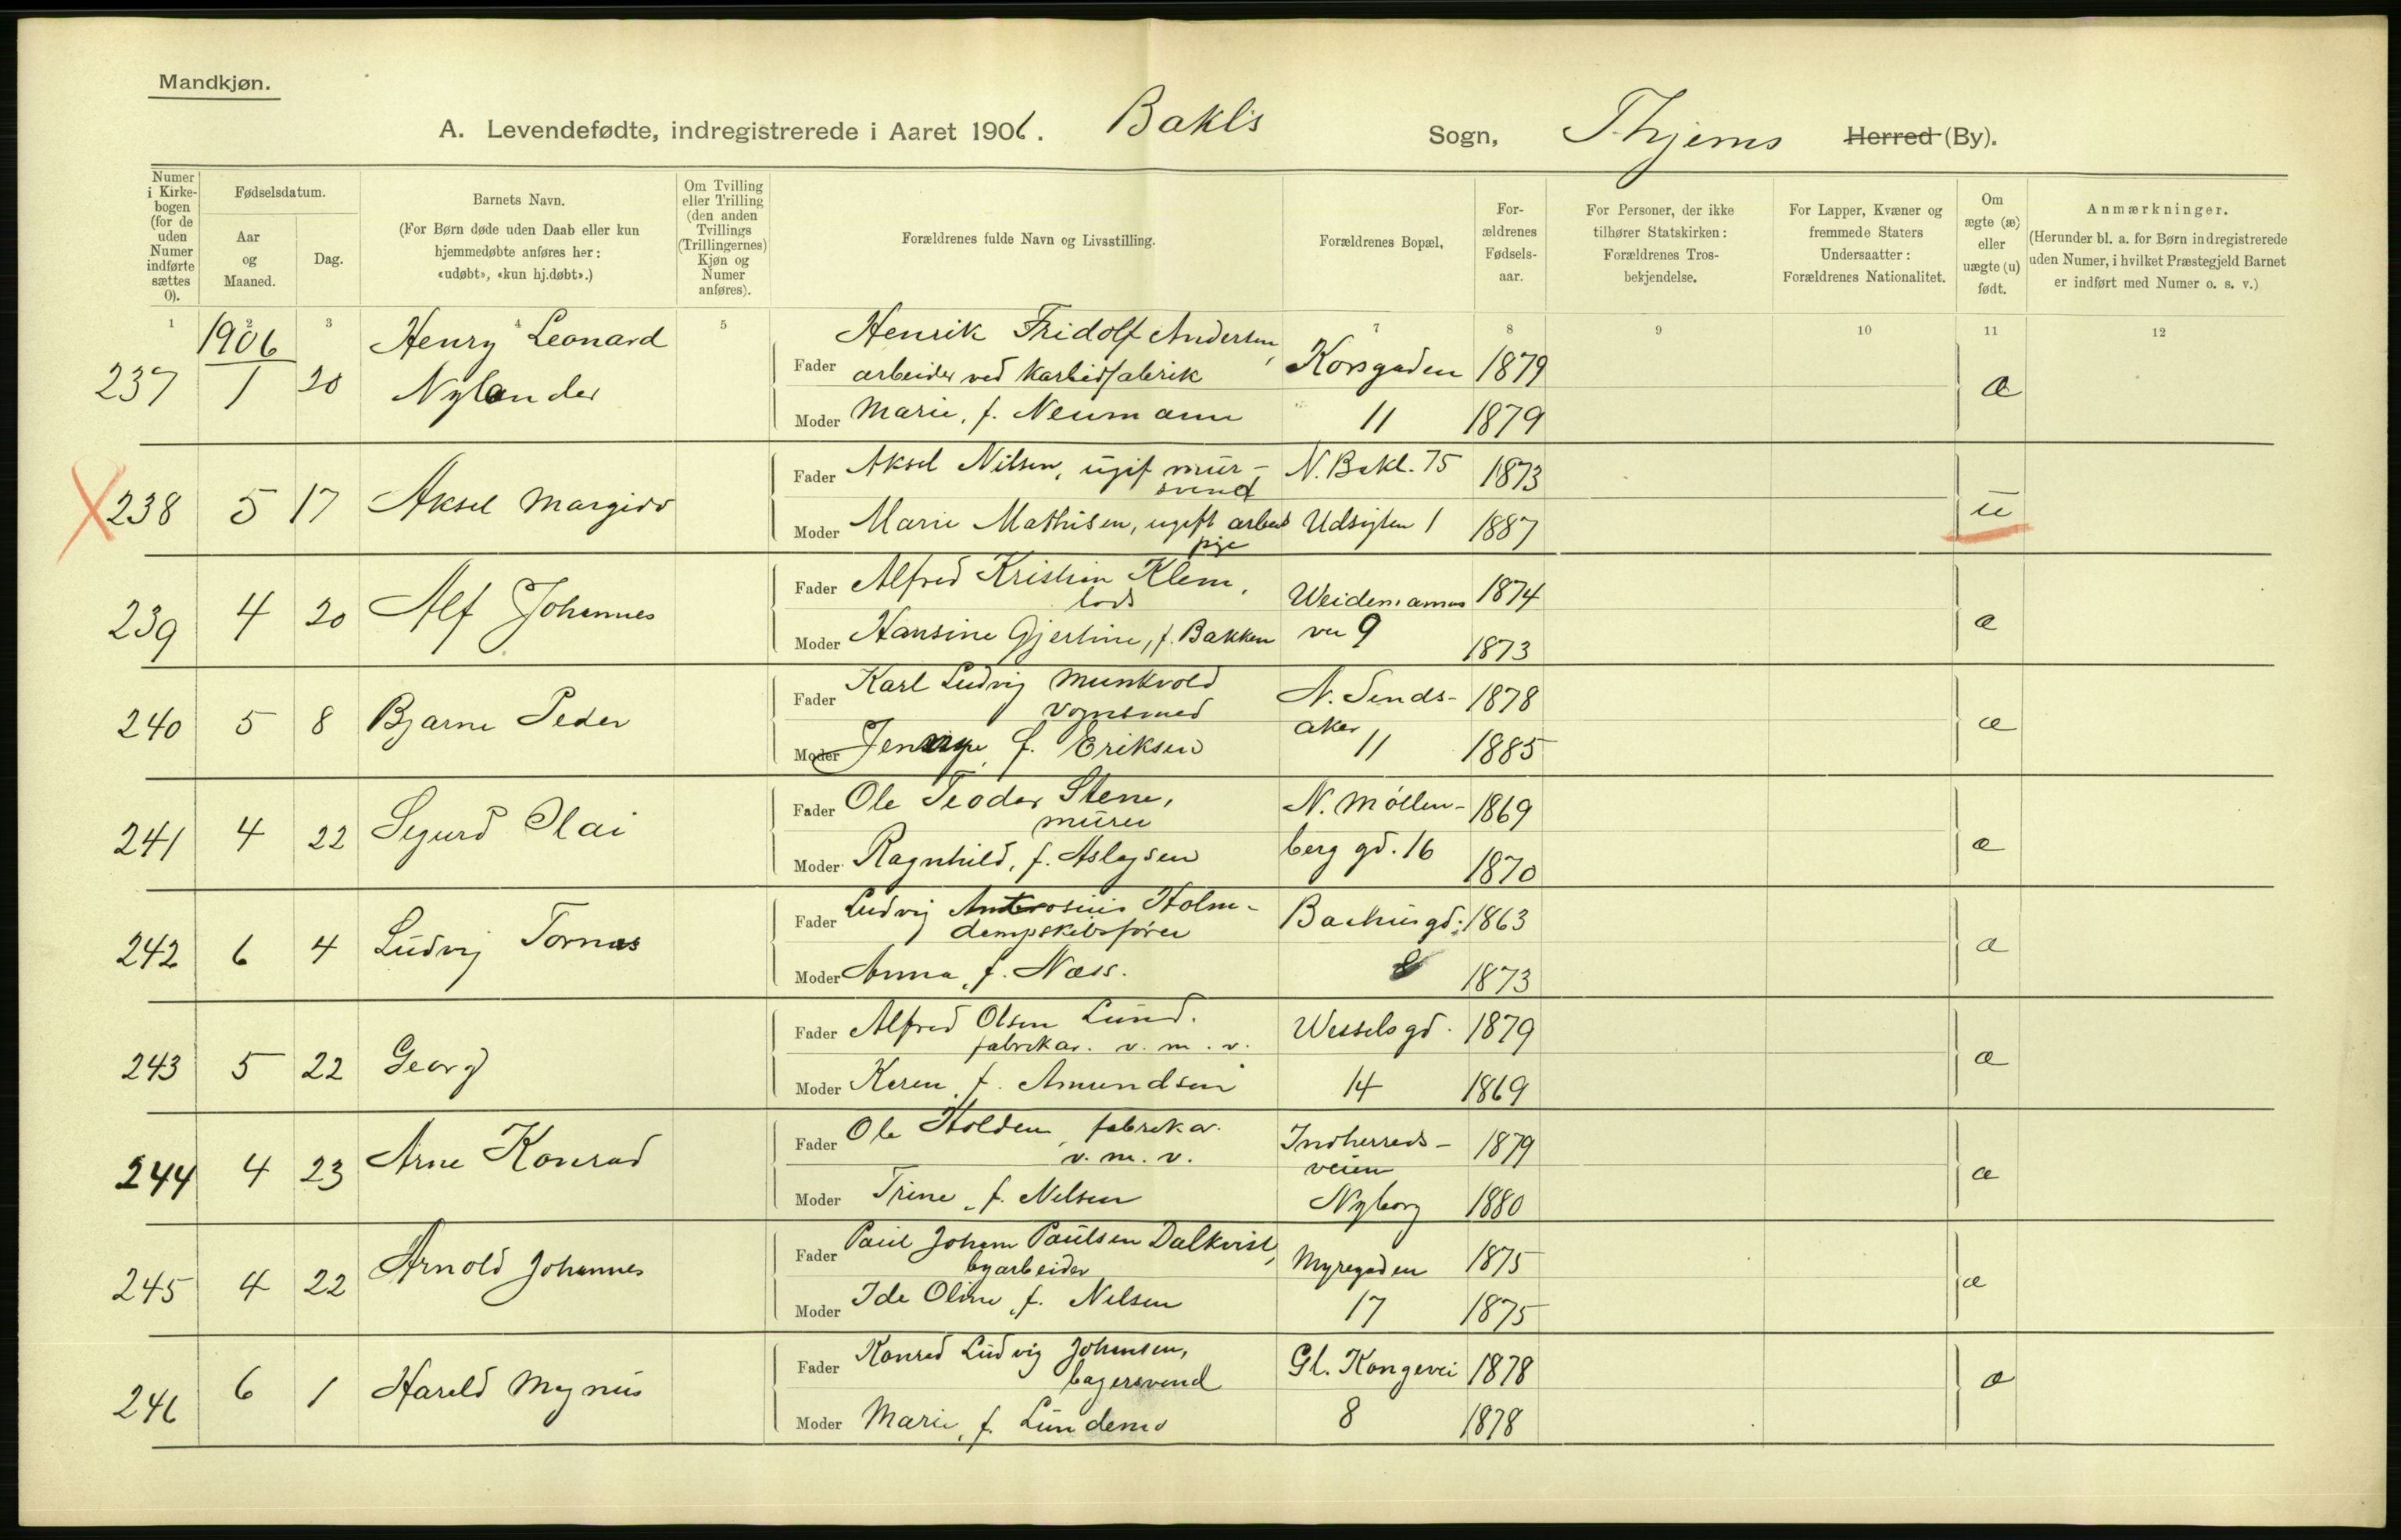 Mandkjøn.
A. Levendefødte, indregistrerede i Aaret 1906. Bakl's Sogn, Thjems Herred (By).
Numer i Kirkebogen (for de uden Numer indførte sættes 0).
Fødselsdatum.
Aar og Maaned.
Dag.
Barnets Navn.
(For Børn døde uden Daab eller kun hjemmedøbte anføres her: «udøbt», «kun hj.døbt».)
Om Tvilling eller Trilling (den anden Tvillings (Trillingernes) Kjøn og Numer anføres).
Forældrenes fulde Navn og Livsstilling.
Forældrenes Bopæl,
Forældrenes Fødselsaar.
For Personer, der ikke tilhører Statskirken: Forældrenes Trosbekjendelse.
For Lapper, Kvæner og fremmede Staters Undersaatter: Forældrenes Nationalitet.
Om ægte (æ) eller uægte (u) født.
Anmærkninger.
(Herunder bl. a. for Børn indregistrerede uden Numer, i hvilket Præstegjeld Barnet er indført med Numer o. s. v.)
1 2 3 4 5 7 8 9 10 11 12
1906
237 1 20 Henry Leonard Nylander
Fader Henrik Fridolf Andersen, arbeider ved Karbidfabrik Korsgaden 1879
Moder Marie, f. Neumann 11 1879 æ
238 5 17 Aksel Margido
Fader Aksel Nilsen, ugif mur-svend N. Bakl. 75 1873
Moder Marie Mathisen, ugift arbeids pige Udsigten 1 1887 u
239 4 20 Alf Johannes
Fader Alfred Kristian Klem, lods Weidemanns 1874
Moder Hansine Gjertine, f. Bakken vei 9 1873 æ
240 5 8 Bjarne Peder
Fader Karl Ludvig Munkvold vognsmed N. Sends- 1878
Moder Jenny, f. Eriksen aker 11 1885 æ
241 4 22 Sigurd Olai
Fader Ole Teodor Stene, murer N. Møllen- 1869
Moder Ragnhild, f. Aslagsen berg gd. 16 1870 æ
242 6 4 Ludvig Tornæs
Fader Ludvig Ambrosius Holm- dampskibsfører Bachus gd. 1863
Moder Anna, f. Næss. 8 1873 æ
243 5 22 Georg
Fader Alfred Olsen Lund. fabrikar. v. m. v. Wessels gd. 1879
Moder Karen, f. Amundsen 14 1869 æ
244 4 23 Arne Konrad
Fader Ole Holden, fabrik a. v. m. v. Indherreds- 1879
Moder Trine, f. Nilsen veien Nyborg 1880 æ
245 4 22 Arnold Johannes
Fader Paul Johan Paulsen Dalkvist, byarbeider Myregaden 1875
Moder Ida Oline, f. Nilsen 17 1875 æ
246 6 1 Harald Magnus
Fader Konrad Ludvig Johansen, bagersvend Gl. Kongevei 1878
Moder Marie, f. Lundemo 8 1878 æ